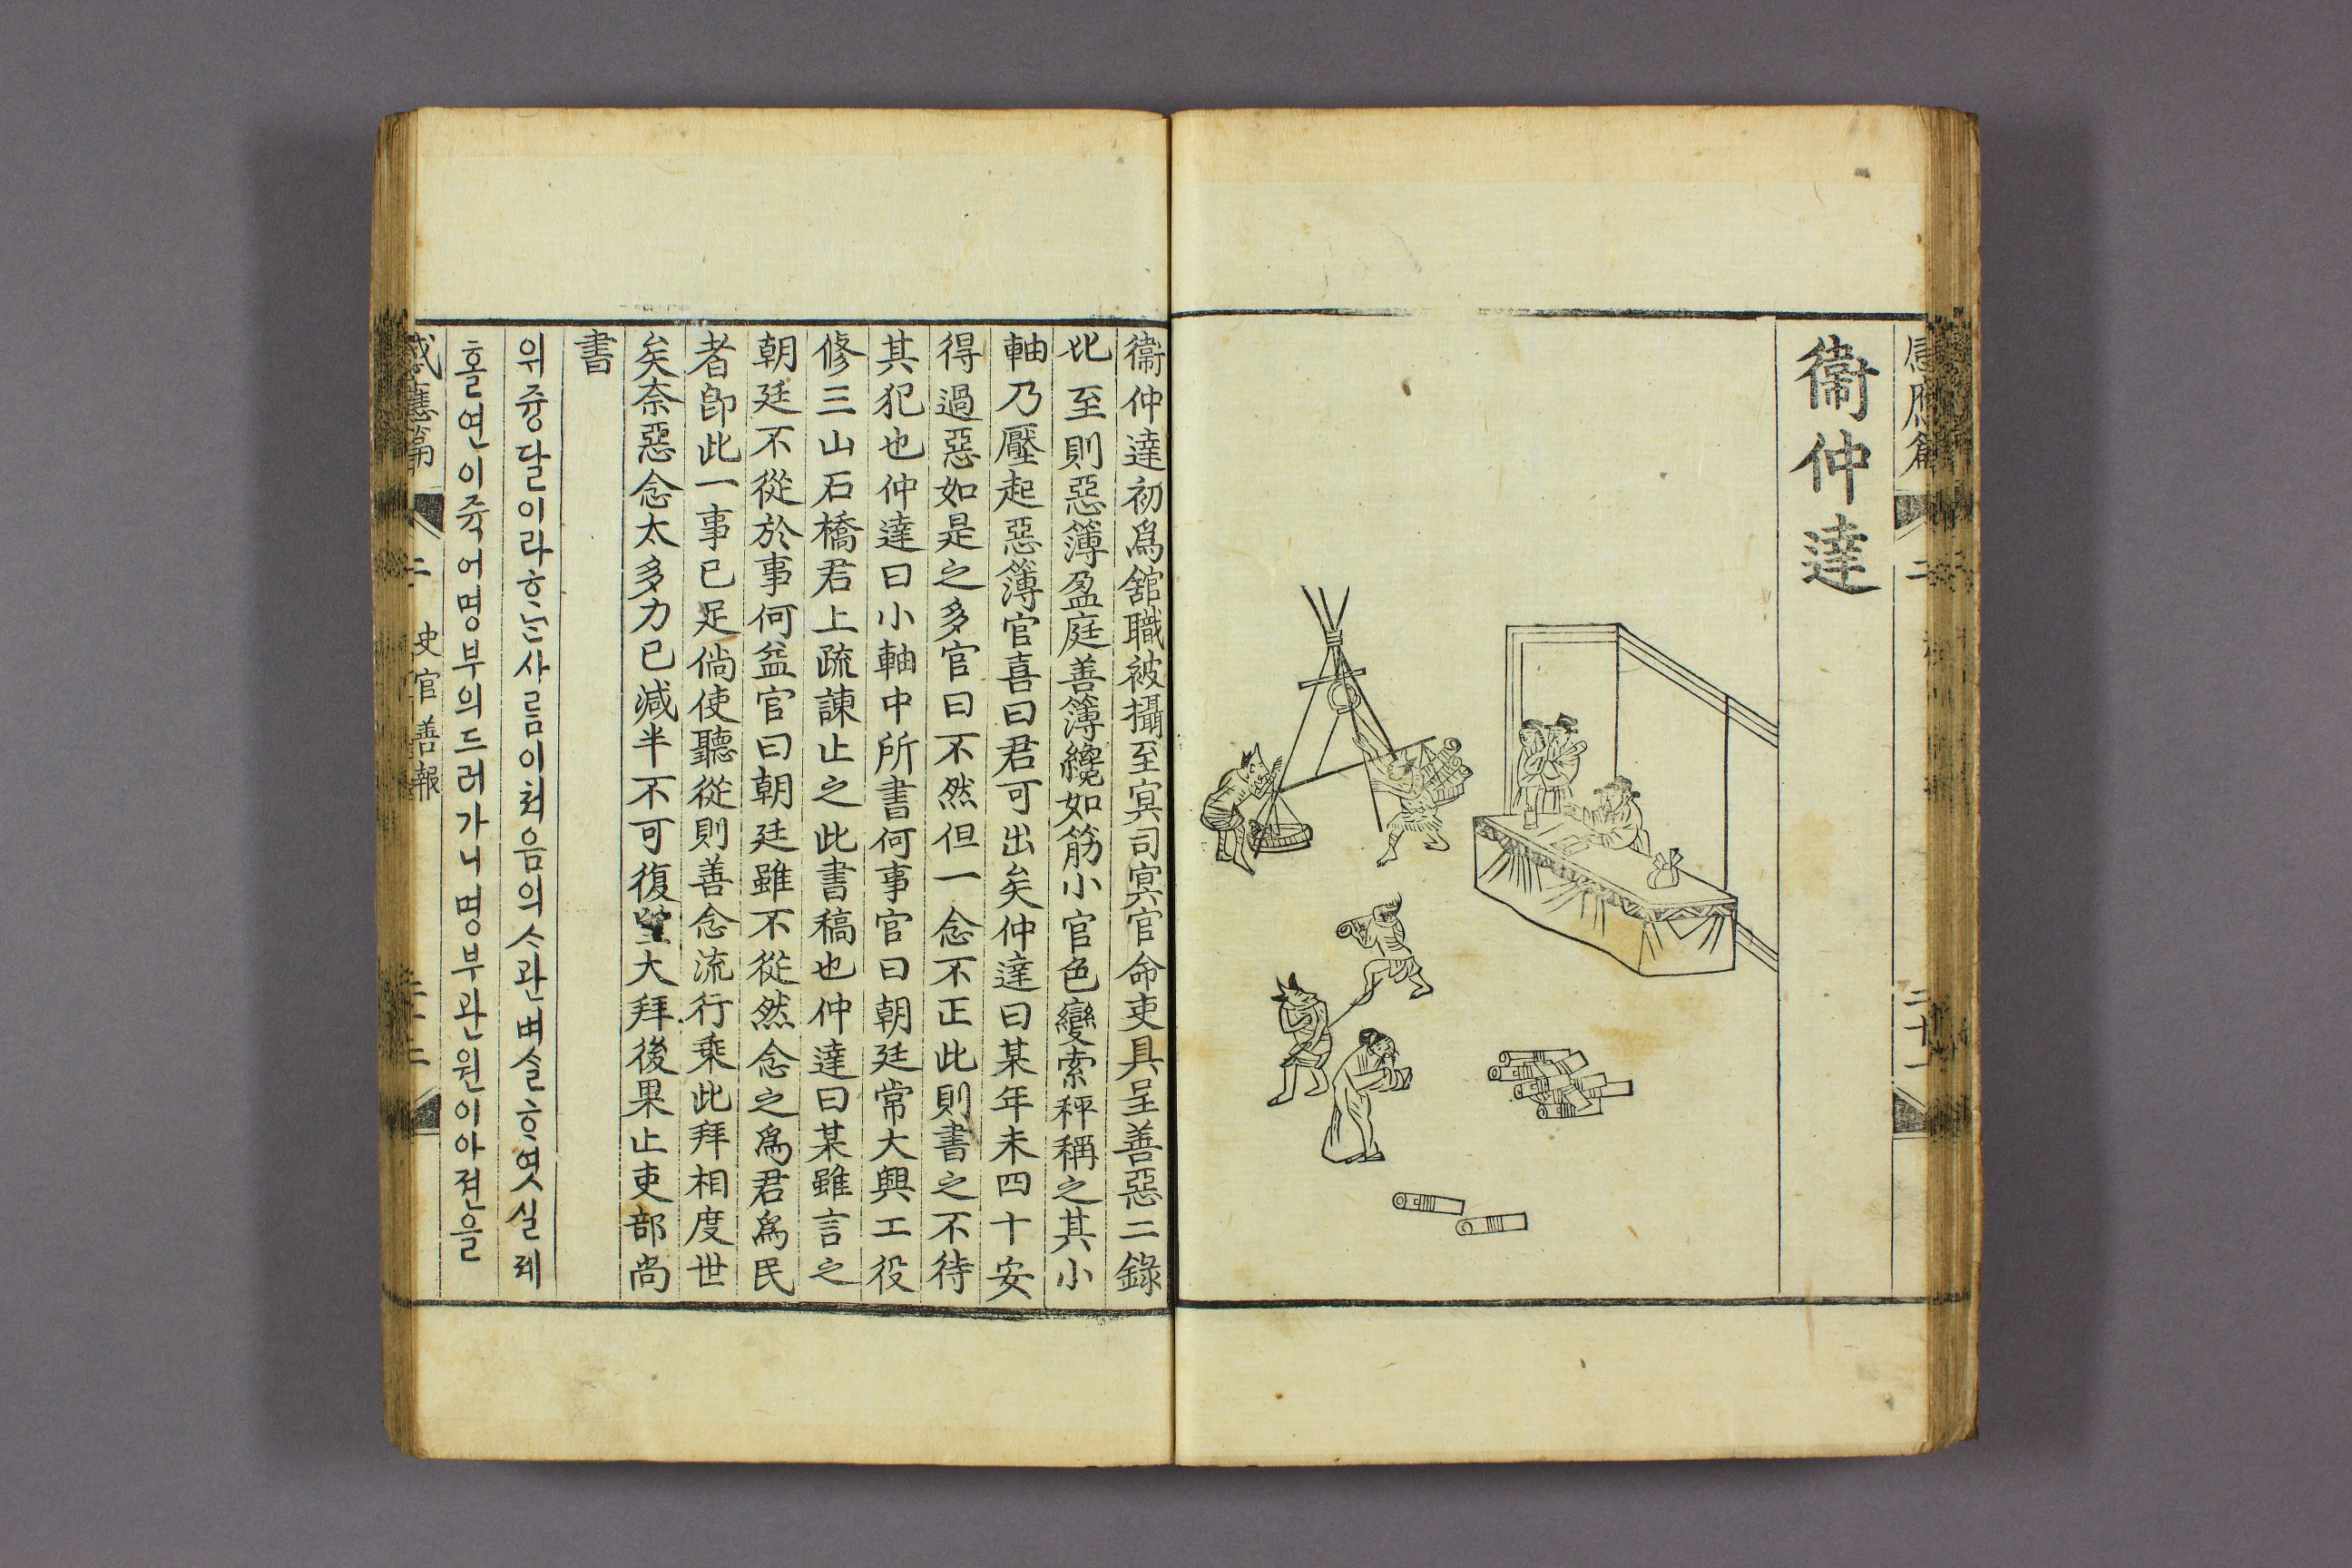 衛仲達
衛仲達初爲舘職被攝至冥司冥官命吏具呈善惡二錄
比至則惡簿盈庭善簿纔如筯小官色變索秤稱之其小
軸乃壓起惡簿官喜曰君可出矣仲達曰某年未四十安
得過惡如是之多官曰不然但一念不正此則書之不待
其犯也仲達曰小軸中所書何事官曰朝廷常大興工役
修三山石橋君上疏諫止之此書稿也仲達曰某雖言之
朝廷不從於事何益官曰朝廷雖不從然念之爲君爲民
者卽此一事已足倘使聽從則善念流行乘此拜相度世
矣奈惡念太多力已減半不可復望大拜後果止吏部尚
書
위즁달이라ᄒᆞᄂᆞᆫ사ᄅᆞᆷ이쳐음의ᄉᆞ관벼슬ᄒᆞ엿실ᄯᅦ
홀연이쥭어명부의드러가니명부관원이아젼을
感應篇 二 史官善報 二十二